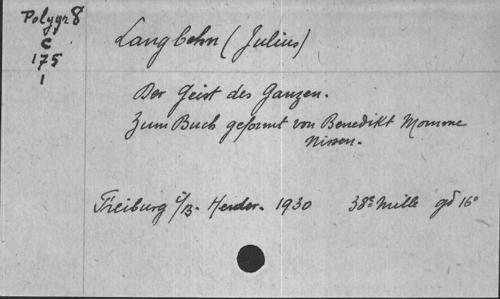 Polygr 8
C
175
1
Langbehn (Julius)
Der Geist des Ganzen.
Zum Buch geformt von Benedikt Momme
Nissen.
Freiburg i/B. Herder. 1930 38e mille gd 16°